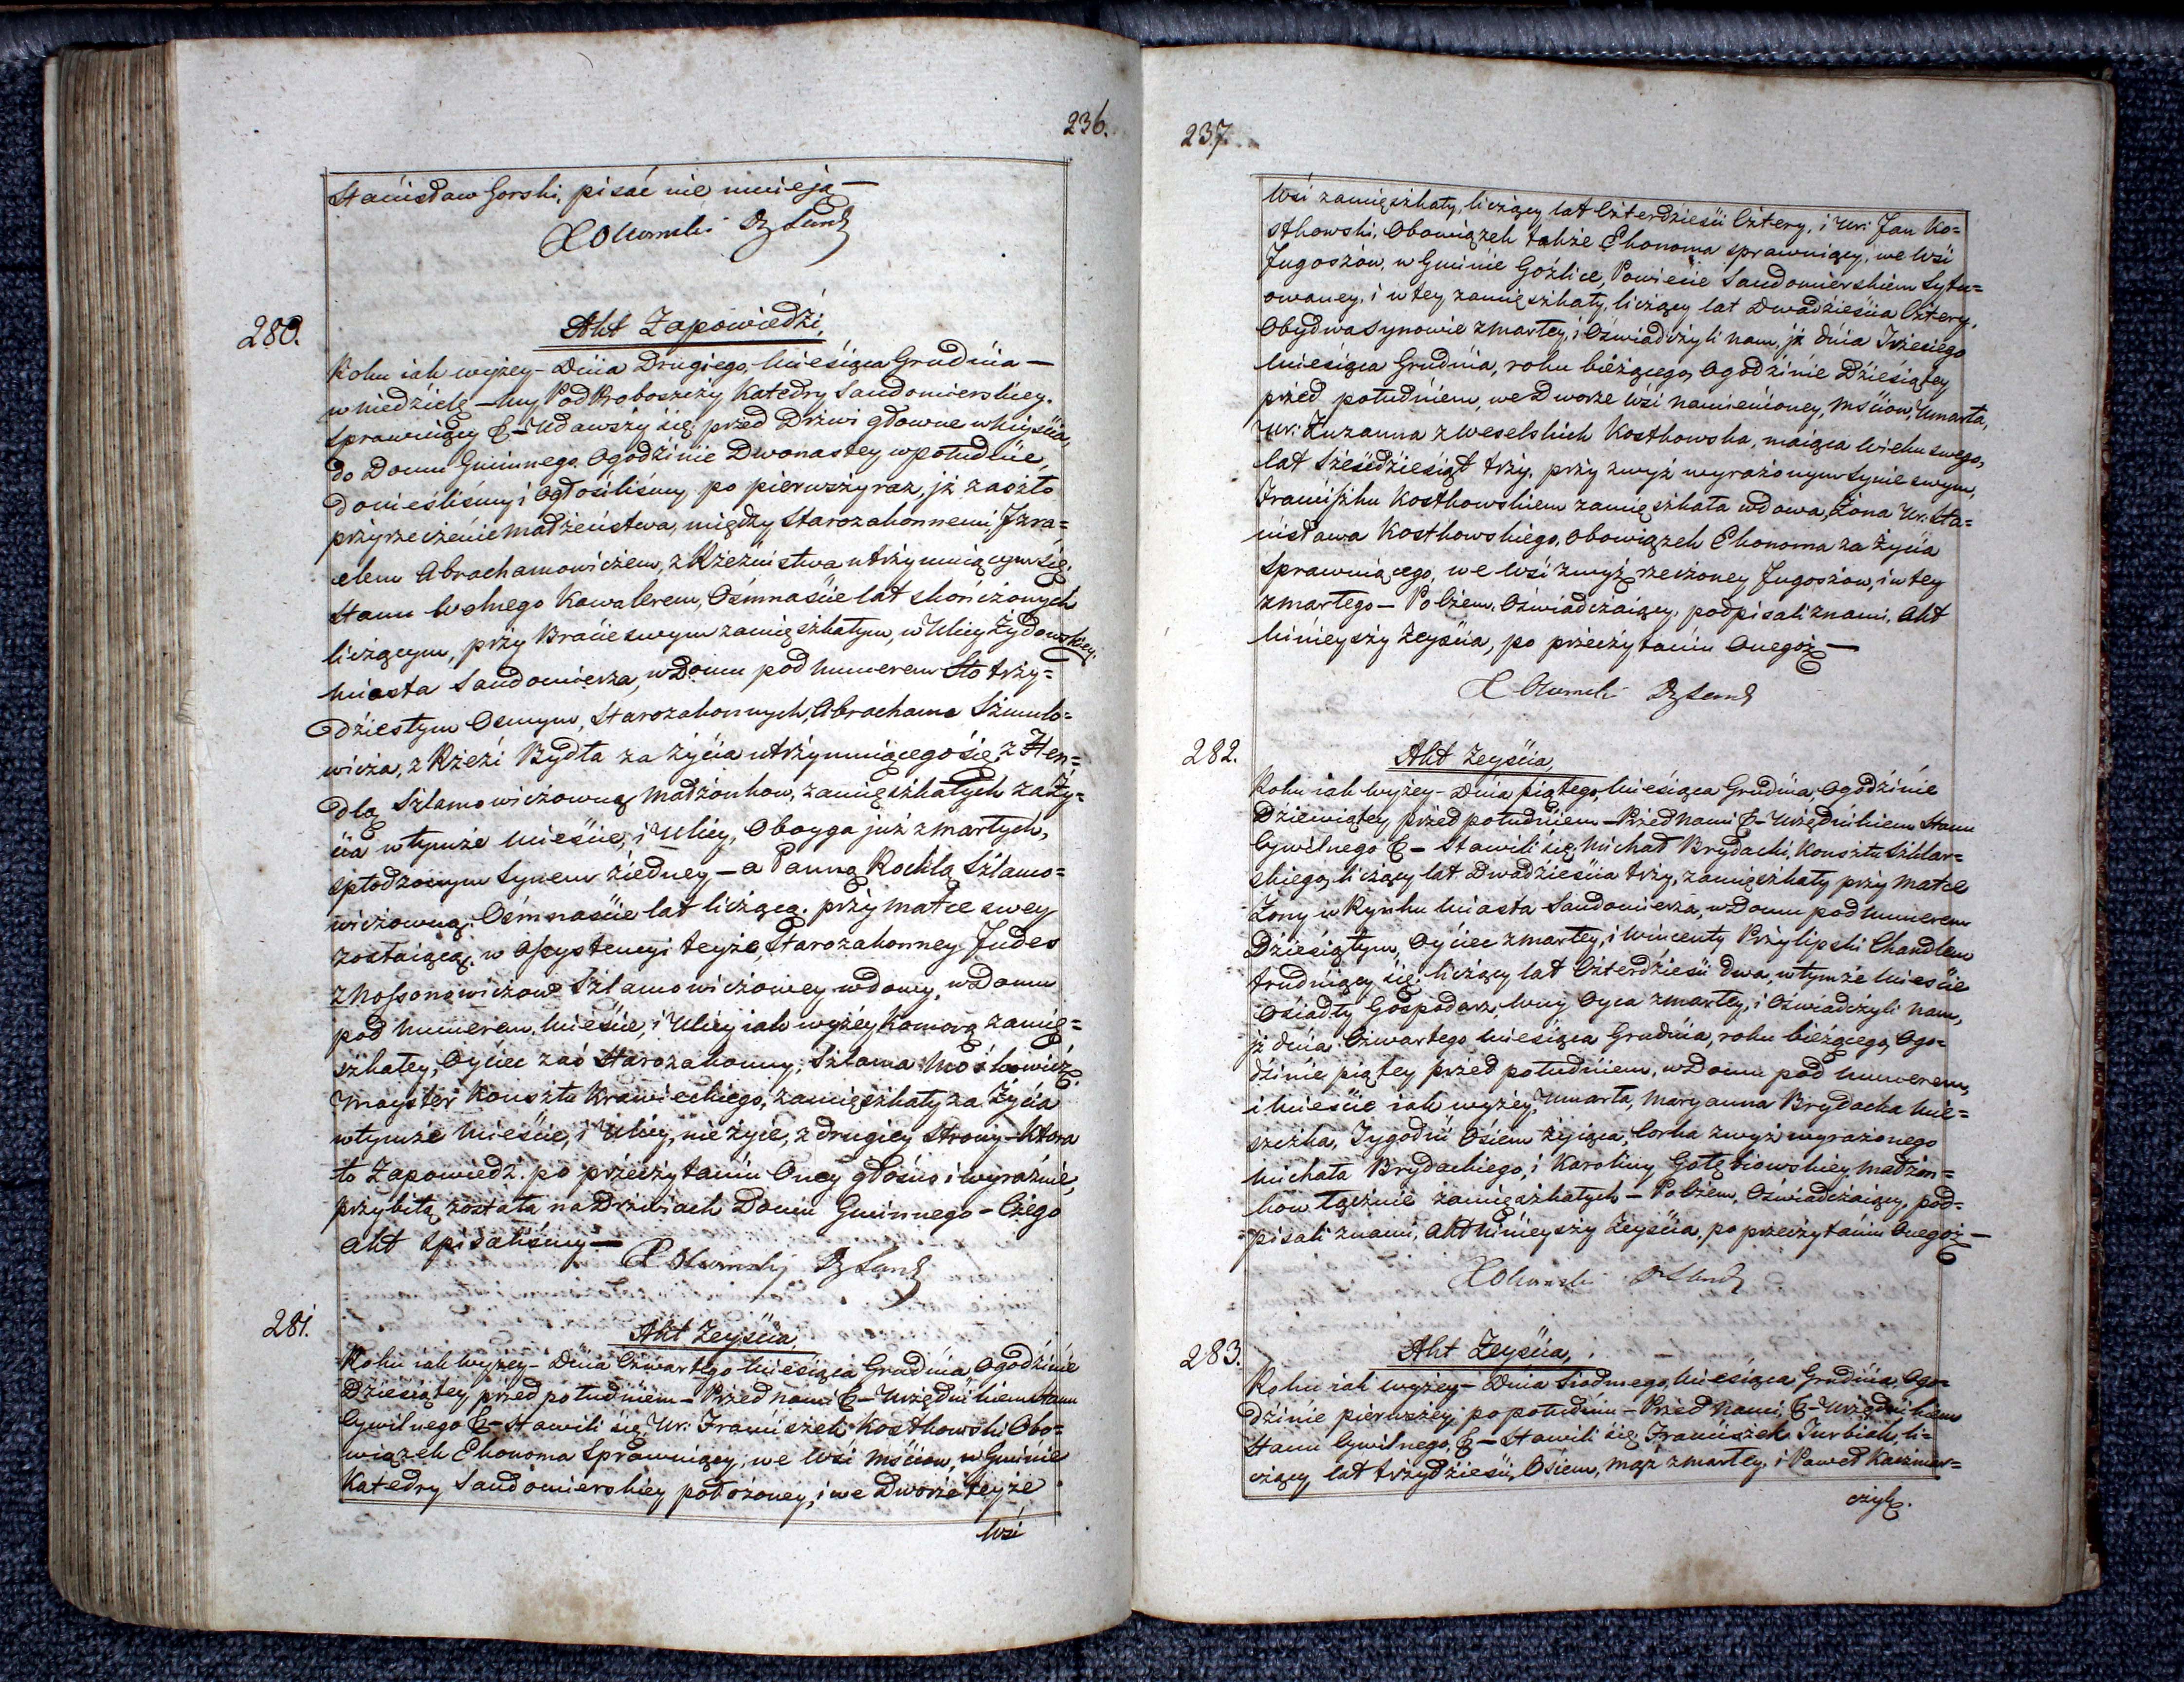 236.
Stanisław Gorski, pisać nie umieją —
280.
Akt Zapowiedzi,
Roku iak wyżey – Dnia Drugiego, Miesiąca Grudnia —
w niedzielę – My Pod Proboszczy Katedry Sandomierskiey.
sprawuiący &– Udawszy się przed Drzwi głowne wniyścia,
do Domu Gminnego, Ogodzinie Dwonastey w południe,
Donieśliśmy i Ogłosiliśmy po pierwszy raz, iż zaszło
przyrzeczenie Małżeństwa, między Starozakonnemi, Jzra=
elem Abrachamowiczem, z Rzeźnistwa utrzymuiącym się,
Stanu Wolnego Kawalerem, Ośmnaście lat skończonych
liczącym, przy Bracie swym zamięszkałym, w Ulicy Żydowskiey
Miasta Sandomierza, w Domu pod Numerem Sto trzy=
dziestym Osmym, Starozakonnych, Abrachama Szmulo=
wicza, z Rzezi Bydła za życia utrzymuiącego się, z Hen=
dlą Szlamowiczowną Małżonkow, zamięszkałych za Ży=
cia w tymże Mieście, i Ulicy, Oboyga już zmarłych,
spłodzonym Synem ziedney – a Panną Rochlą Szlamo=
wiczowną, Ośmnaście lat liczącą, przy Matce swey
zostaiącą, w Assystencyi teyże, Starozakonney Judes
z Mossonowiczow Szlamowiczowey wdowy, w Domu
pod Numerem, Mieście, i Ulicy iak wyżey Komorą zamię=
szkałey, Oyciec zaś Starozakonny, Szlama Mośkowicz,
Mayster Konsztu Krawieckiego, zamięszkały za Życia
w tymże Mieście, i Ulicy, nie żyie, z drugiey Strony – Ktora
to Zapowiedź, po przeczytaniu Oney głośno i wyraźnie,
przybita została na Drzwiach Domu Gminnego – Czego
Akt spisaliśmy —
281.
Akt Zeyścia,
Roku iak wyżey – Dnia Czwartego Miesiąca Grudnia, Ogodzinie
Dziesiątey przed południem – Przed Nami &– Urzędnikiem Stanu
Cywilnego &– Stawili się, Ur: Franciszek Kostkowski Obo=
wiązek Ekonoma sprawuiący, we Wsi Mściow, w Gminie
Katedry Sandomierskiey położoney, i we Dworze teyże
Wsi
237.
Wsi zamięszkały, liczący lat Czterdzieści Cztery, i Ur: Jan Ko=
stkowski, Obowiązek także Ekonoma sprawuiący, we Wsi
Jugoszów, w Gminie Goźlice, Powiecie Sandomierskiem Sytu=
owaney, i w tey zamięszkały, liczący lat Dwadzieścia Cztery,
Obydwa Synowie zmarłey, i Oświadczyli nam, iż dnia Trzeciego
Miesiąca Grudnia, roku bieżącego, Ogodzinie Dziesiątey
przed południem, we Dworze Wsi namienioney, Mściow, Umarła,
Ur: Zuzanna z Weselskich Kostkowska, maiąca wieku swego,
lat Sześćdziesiąt trzy, przy zwyż wyrażonym Synie swym,
Franciszku Kostkowskiem zamięszkała wdowa, Żona Ur: Sta=
nisława Kostkowskiego, Obowiązek Ekonoma za Życia
Sprawuiącego, we Wsi zwyż rzeczoney Jugoszow, i w tey
zmarłego – Poczem, Oświadczaiący, podpisali znami, Akt
Ninieyszy Zeyścia, po przeczytaniu Onegoż —
282.
Akt Zeyścia,
Roku iak Wyżey – Dnia piątego, Miesiąca Grudnia, Ogodzinie
Dziewiątey przed południem – Przed Nami &– Urzędnikiem Stanu
Cywilnego &– Stawili się, Michał Brydacki, Konsztu Szklar=
skiego, liczący lat Dwadzieścia trzy, zamięszkały przy Matce
Żony w Rynku Miasta Sandomierza, w Domu pod Numerem
Dziesiątym, Oyciec zmarłey, i Wincenty Przylipski Chandlem
trudniący się, liczący lat Czterdzieści dwa, w tymże Mieście
Osiadły Gospodarz, Wuy Oyca zmarłey, i Oświadczyli Nam,
iż dnia Czwartego Miesiąca Grudnia, roku bieżącego, Ogo=
dzinie piątey przed południem, w Domu pod Numerem,
i Mieście iak wyżey, Umarła, Maryanna Brydacka Mie=
szczka, Tygodni Ośiem żyiąca, Corka zwyż wyrażonego
Michała Brydackiego, i Karoliny Gołębiowskiey Małżon=
kow łącznie zamięszkałych – Poczem, Oświadczaiący, pod=
pisali znami, Akt Ninieyszy Zeyścia, po przeczytaniu Onegoż —
283.
Akt Zeyścia,
Roku iak wyżey – Dnia Siodmego, Miesiąca Grudnia, Ogo=
dzinie pierwszey po południu – Przed Nami, &– Urzędnikiem
Stanu Cywilnego, &– Stawili się Franciszek Turbiak, li=
czący lat trzydzieści Ośiem, mąż zmarłey, i Paweł Kaczmar=
czyk.